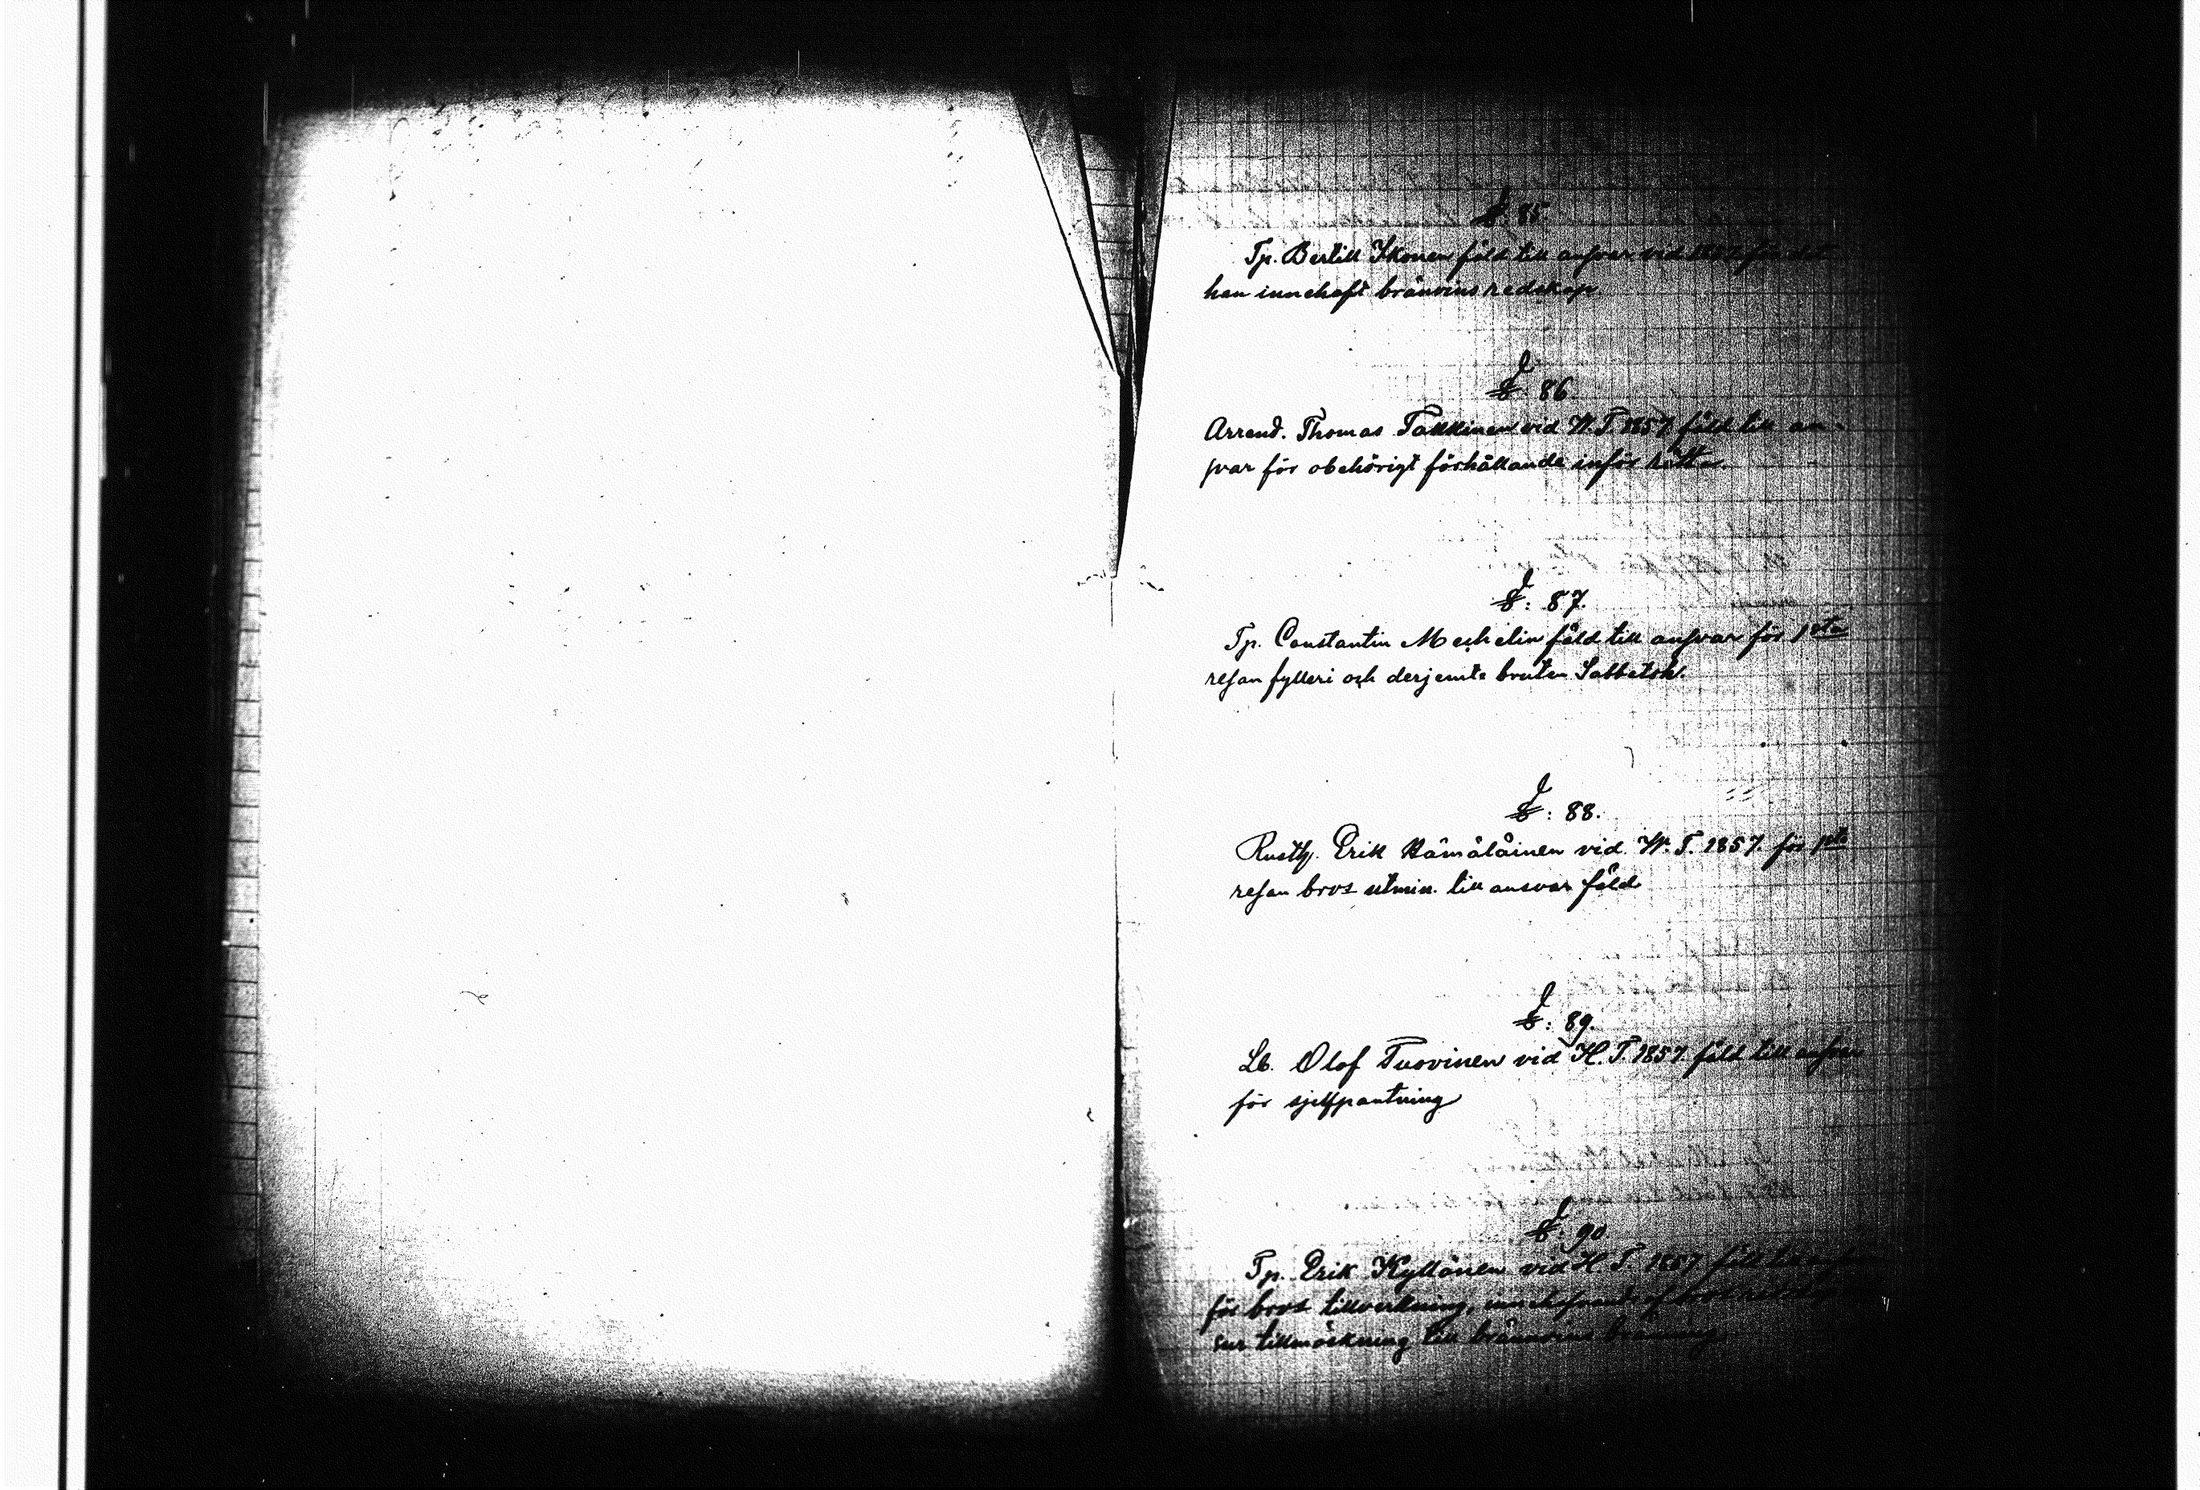 §: 85.
Tp. Bertill Ikonen fäld till ansvar vid 1857 för det
han innehaft bränvins redskap.
§: 86.
Arrend. Thomas Takkinen vid W. T. 1857 fäld till an-
svar för obehörigt förhållande inför rätta.
§: 87.
Tp. Constantin Mechelin fäld till ansvar för 1sta
resan fylleri och derjemte bruten Sabbatsh.
§: 88.
Rusth. Erik Hämäläinen vid W. T. 1857 för 1sta
resan brvs utmin. till ansvar fäld
§: 89.
Lb. Olof Tuovinen vid H. T. 1857 fäld till ansvar
för sjelfpantning
§: 90
Tp. Erik Kyllönen vid H. T. 1857 fäld till
för brvs tillverkning, innehafvande af
sur tillmäskning till brännvins bränning